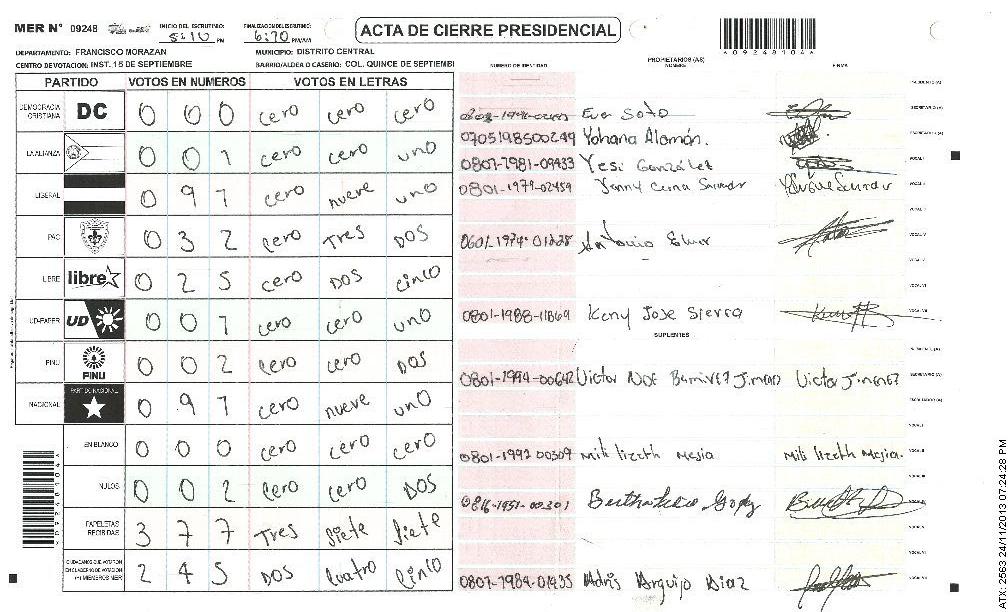 MER N° 09248 INICIO DEL ESCRUTINIO: 5:10 PM FINALIZACION DEL ESCRUTINIO: 6:70 PM/AM ACTA DE CIERRE PRESIDENCIAL
DEPARTAMENTO: FRANCISCO MORAZAN MUNICIPIO: DISTRITO CENTRAL
CENTRO DE VOTACION: INST. 15 DE SEPTIEMBRE BARRIO/ALDEA O CASERIO: COL. QUINCE DE SEPTIEMBI
NUMERO DE IDENTIDAD PROPIETARIOS (AS) NOMBRE FIRMA
PARTIDO VOTOS EN NUMEROS VOTOS EN LETRAS
DEMOCRACIA CRISTIANA DC 0 0 0 cero cero cero
LA ALIANZA 0 0 1 cero cero uno
LIBERAL 0 9 1 cero nueve uno
PAC 0 3 2 cero Tres DOS
LIBRE libre 0 2 5 cero DOS cinco
UD-FAPER UD 0 0 1 cero cero uno
PINU PINU 0 0 2 cero cero DOS
NACIONAL PARTIDO NACIONAL 0 9 1 cero nueve uno
EN BLANCO 0 0 0 cero cero cero
NULOS 0 0 2 cero cero DOS
PAPELETAS RECIBIDAS 3 7 7 Tres siete siete
CIUDADANOS QUE VOTARON EN CUADERNO DE VOTACION (+) MIEMBROS MER 2 4 5 DOS cuatro cinco
Eva Soto
0705198500249 Yohana Alemán.
0801-1981-09433 Yesi González
0801-1979-02459
Antonio
0801-1988-11869 Keny Jose Sierra
SUPLENTES
0801-1994-00642 Victor NOE Jimenez Victor Jimenez
0801-1992 00309 Mili lizeth Mejia Mili lizeth Mejia.
0816-1951-00301
0801-1984-01435
*09248104*
ATX: 2563 24/11/2013 07:24:28 PM